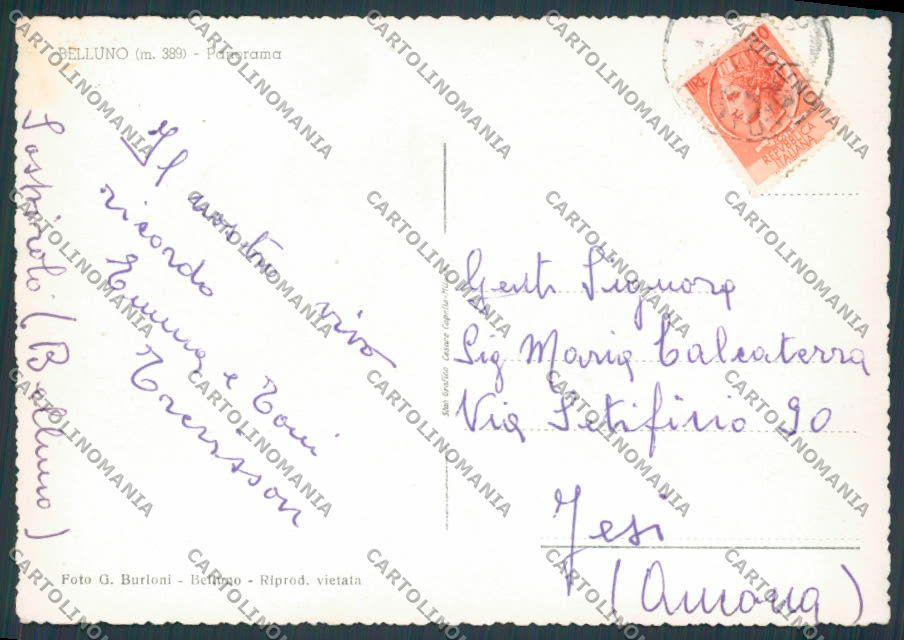 BELLUNO (m. 389) - Panorama
Il nostro vivo
ricordo
Emma e Toni
Trevisson
Sospirolo (Belluno)
Foto G. Burloni - Belluno - Riprod. vietata
Stab. Grafico Cesare Capello - Milano
REPVBBLICA
ITALIANA
Gent. Signora
Sig Maria Calcaterra
Via Setificio 90
Jesi
(Ancona)
CARTOLINOMANIA